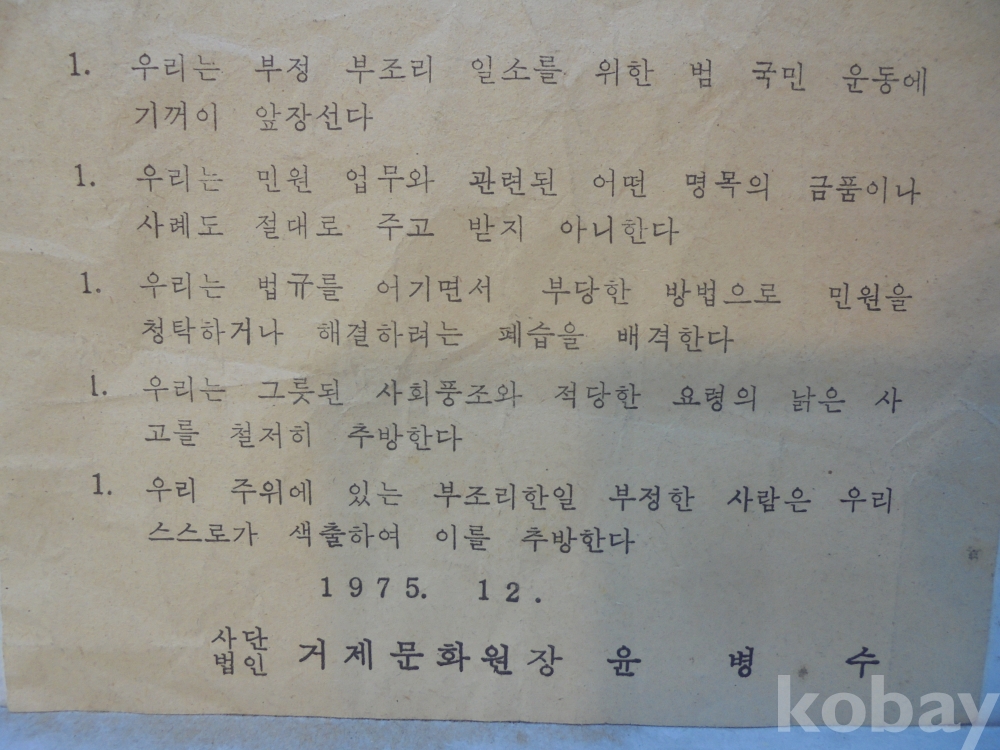 1. 우리는 부정 부조리 일소를 위한 범 국민 운동에
기꺼이 앞장선다
1. 우리는 민원 업무와 관련된 어떤 명목의 금품이나
사례도 절대로 주고 받지 아니한다
1. 우리는 법규를 어기면서 부당한 방법으로 민원을
청탁하거나 해결하려는 폐습을 배격한다
1. 우리는 그릇된 사회풍조와 적당한 요령의 낡은 사
고를 철저히 추방한다
1. 우리 주위에 있는 부조리한일 부정한 사람은 우리
스스로가 색출하여 이를 추방한다
1975. 12.
사단법인 거제문화원장 윤 병 수
kobay